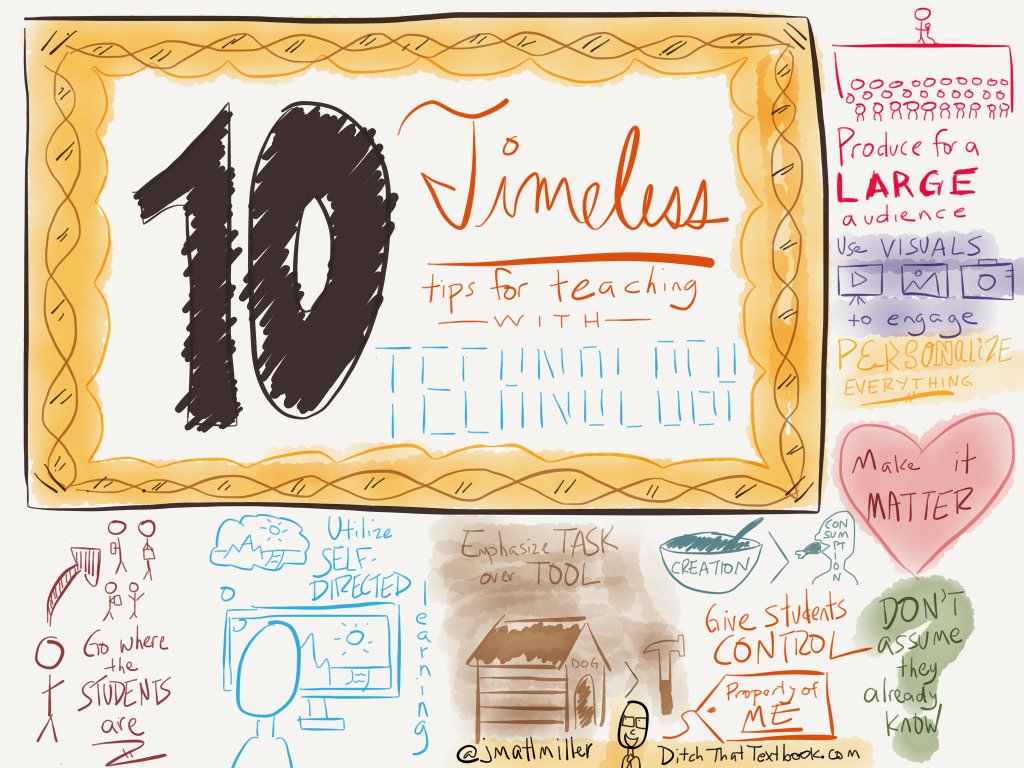 10
Timeless
tips for teaching
WITH
TECHNOLOGY
Produce for a
LARGE
audience
Use VISUALS
to engage
PERSONALIZE
EVERYTHING
Make it
MATTER
DON'T
assume
they
already
KNOW
CREATION
CON
SUMP
TION
Give Students
CONTROL
Property of
ME
Emphasize TASK
over TOOL
DOG
Utilize
SELF-
DIRECTED
learning
Go where
the
STUDENTS
are
@jmattmiller
DitchThatTextbook.com